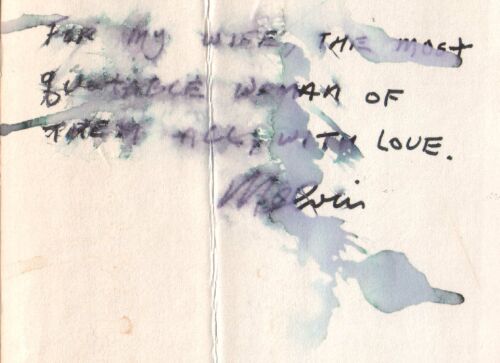 FOR MY WIFE, THE MOST
QUOTABLE WOMAN OF
THEM ALL, WITH LOVE.
Melvin